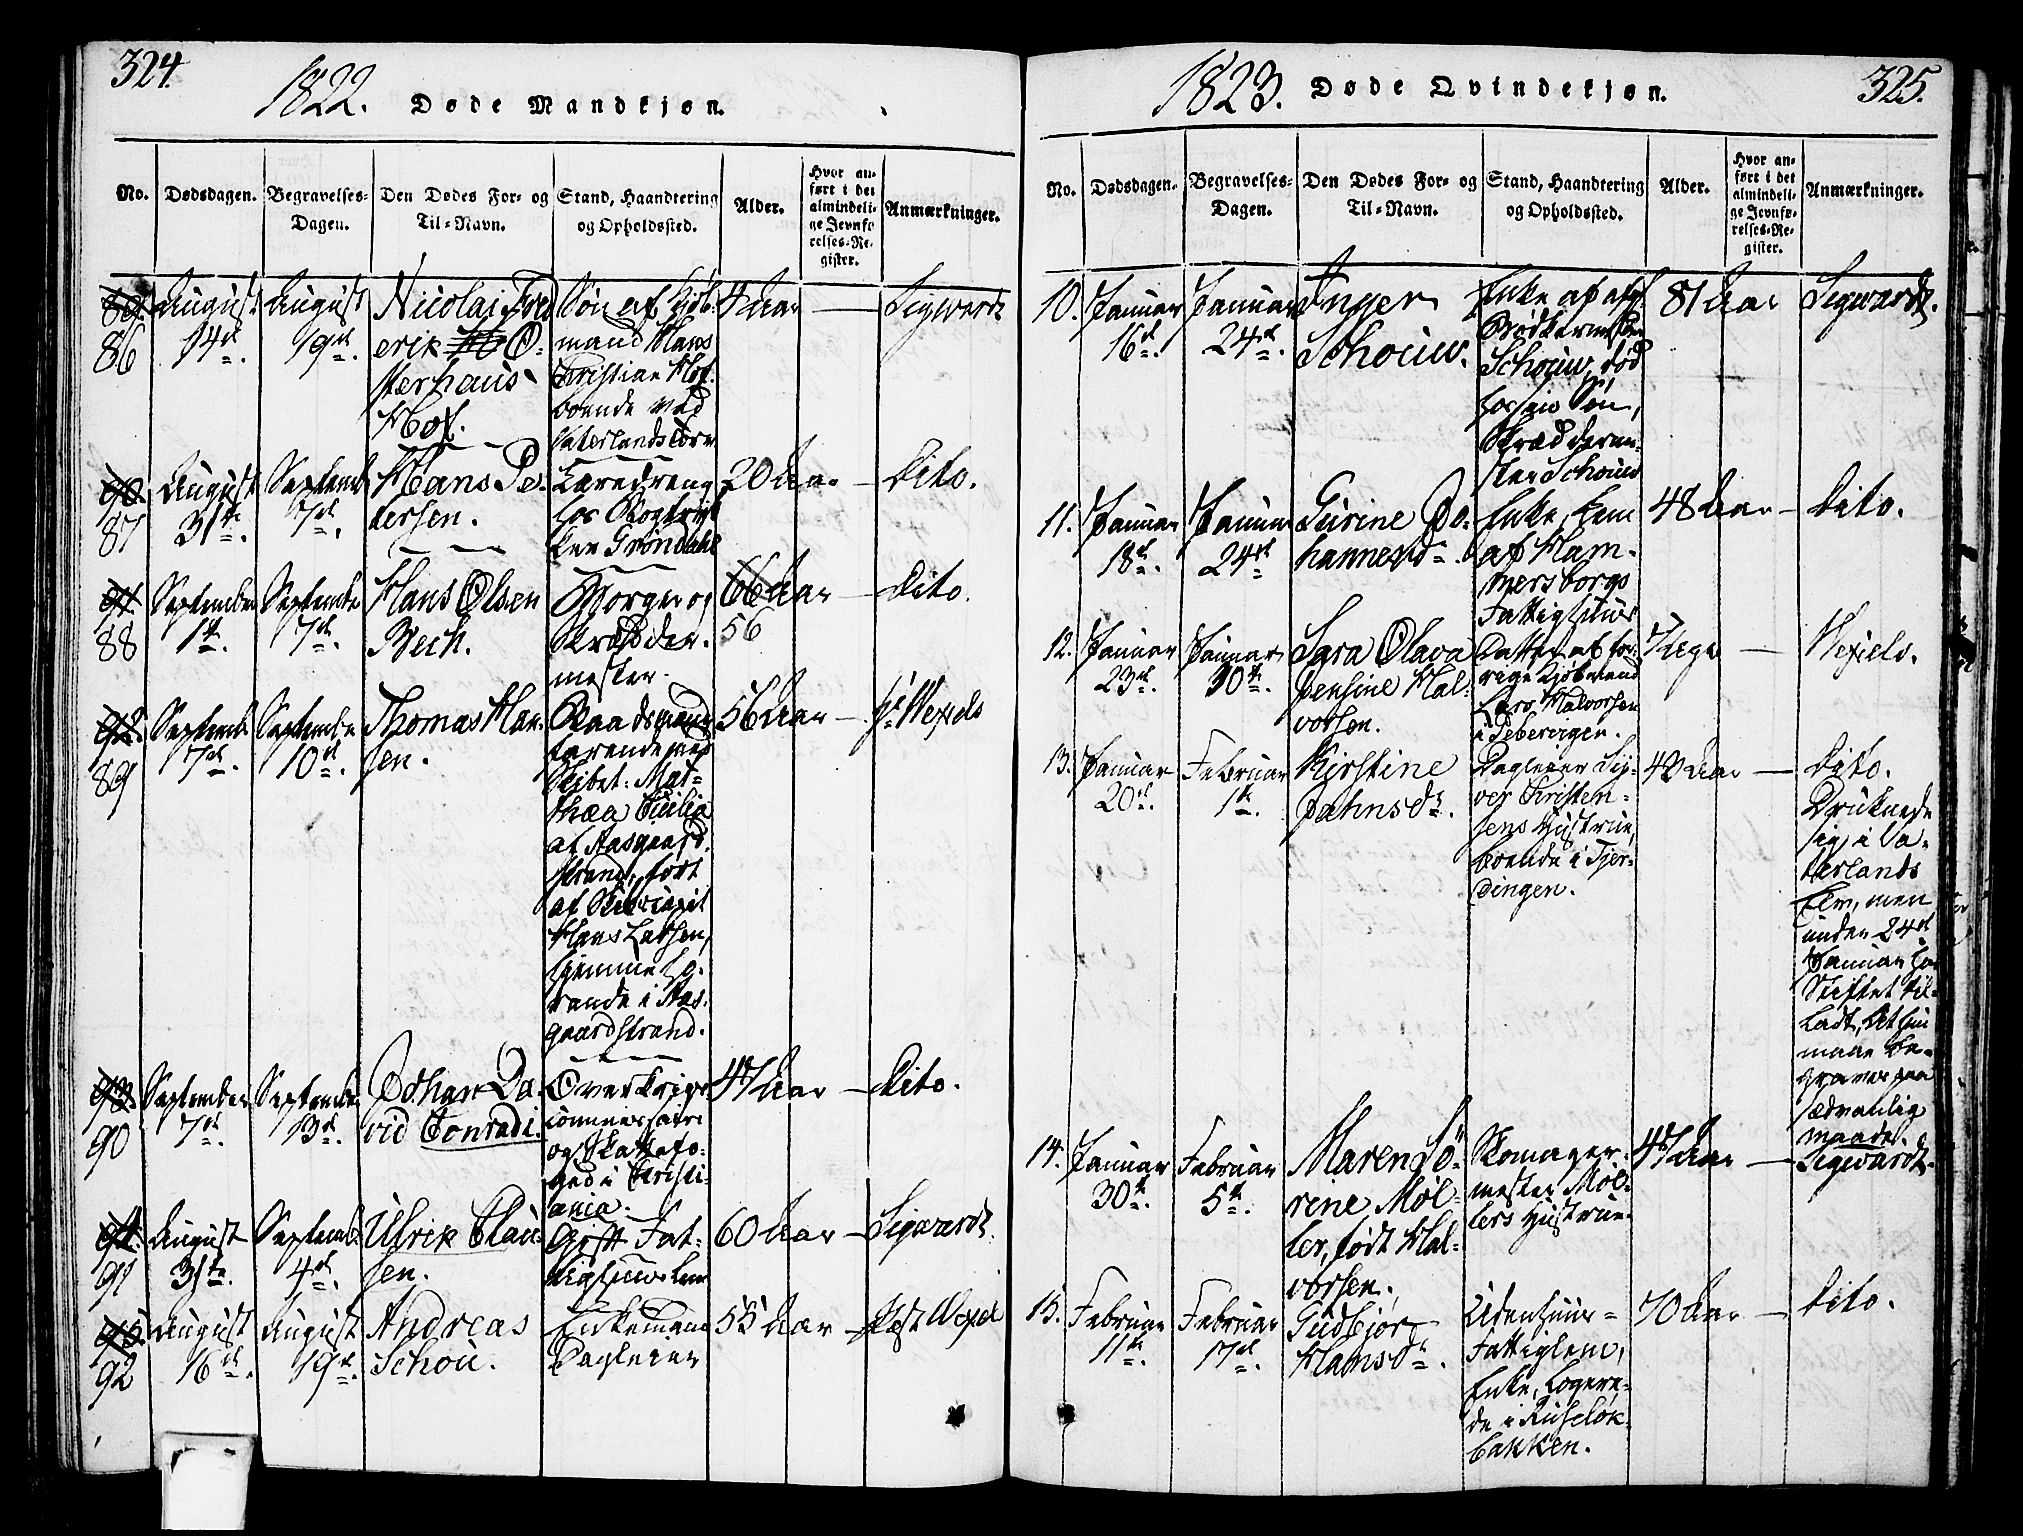 324.
1822. Døde Mandkjøn.
No.
Dødsdagen.
Begravelses-
Dagen.
Den Dødes For- og
Til-Navn.
Stand, Haandtering
og Opholdssted.
Alder.
Hvor an-
ført i det
almindeli-
ge Jevnfø
relses-Re-
gister.
Anmærkninger.
89
86
August
14de.
August
19de.
Nicolai Fred
erik O-
sterhaus
Hof.
Søn af Kjøb-
mand Hans
Christian Hof.
boende ved
Vaterlandsbroe
4 Aar
Sigwardt
90
87
August
31te.
Septemb
7de.
Hans Pe-
dersen.
Læredreng
hos Bogtryk
ker Grøndahl
20 Aar
Dito.
91
88
September
1ste.
Septembr
7de.
Hans Olsen
Bech.
Borger og
Skrædder-
mester.
66 Aar
56
Dito.
92.
89
Septemb
7de.
Septembr
10de.
Thomas Han-
sen.
Baadsmand
farende med
Skibet: Mat-
thæa Cicilia
af Aasgaard-
strand, ført
af
Hans Larsen,
hjemmehø-
rende i Aas-
gaardstrand.
56 Aar
Hr Wexels
93.
90
September
7de.
Septembr
13de.
Johan Da-
vid Conradi.
Overkrigs-
commissair
og Skattefo-
ged i Christi-
ania.
47 Aar
Dito.
94.
91
August
31te.
Septemb
4de.
Ulrik Clau-
sen.
Gift Fat-
tighuus Lem
60 Aar
Sigwardt.
95
92
August
16de.
August
19de.
Andreas
Schou.
Enkemand
Dagleier
55 Aar
Pst Wexel
1823. Døde Qvindekjøn.
325.
No.
Dødsdagen.
Begravelses-
Dagen.
Den Dødes For- og
Til-Navn.
Stand, Haandtering
og Opholdssted.
Alder.
Hvor an-
ført i det
almindeli-
ge Jevnfø-
relses-Re-
gister.
Anmærkninger.
10.
Januar
16de.
Januar
24de.
Inger
Schouw.
Enke af afg.
Bødkermester
Schouw, død
hos sin Søn,
Skrædderme-
ster Schouw
81 Aar
Sigwardt.
11.
Januar
18de.
Januar
24de
Gurine Jo-
hannesdr.
Enke, Lem
af Ham-
mersborgs
Fattighuus
48 Aar
Dito.
12.
Januar
23de.
Januar
30te.
Sara Olava
Jensine Hal-
vorsen.
Datter af for-
rige Kjøbmand
Lars Halvorsen
i Pebervigen.
7 Uger
Wexels.
13.
Januar
20de.
Februar
1ste.
Kjerstine
Jahnsdr.
Dagleier Sy-
ver Christen-
sens Hustrue,
boende i Fjer-
dingen.
43 Aar
Dito.
Druknede
sig i Va-
terlands
Elv, men
under 24de
Januar har
Stiftet til-
ladt, at hun
maae be-
graves paa
sædvanlig
maade.
14.
Januar
30te.
Februar
5te.
Maren Sø-
rine Møl-
ler, født Hal-
vorsen.
Skomager-
mester Møl-
lers Hustrue.
47 Aar
Sigwardt.
15.
Februar
11te.
Februar
17de.
Gudbjør
Hansdr.
Udenhuus-
Fattiglem,
Enke, logere-
de i Ruseløk-
bakken.
70 Aar
Dito.